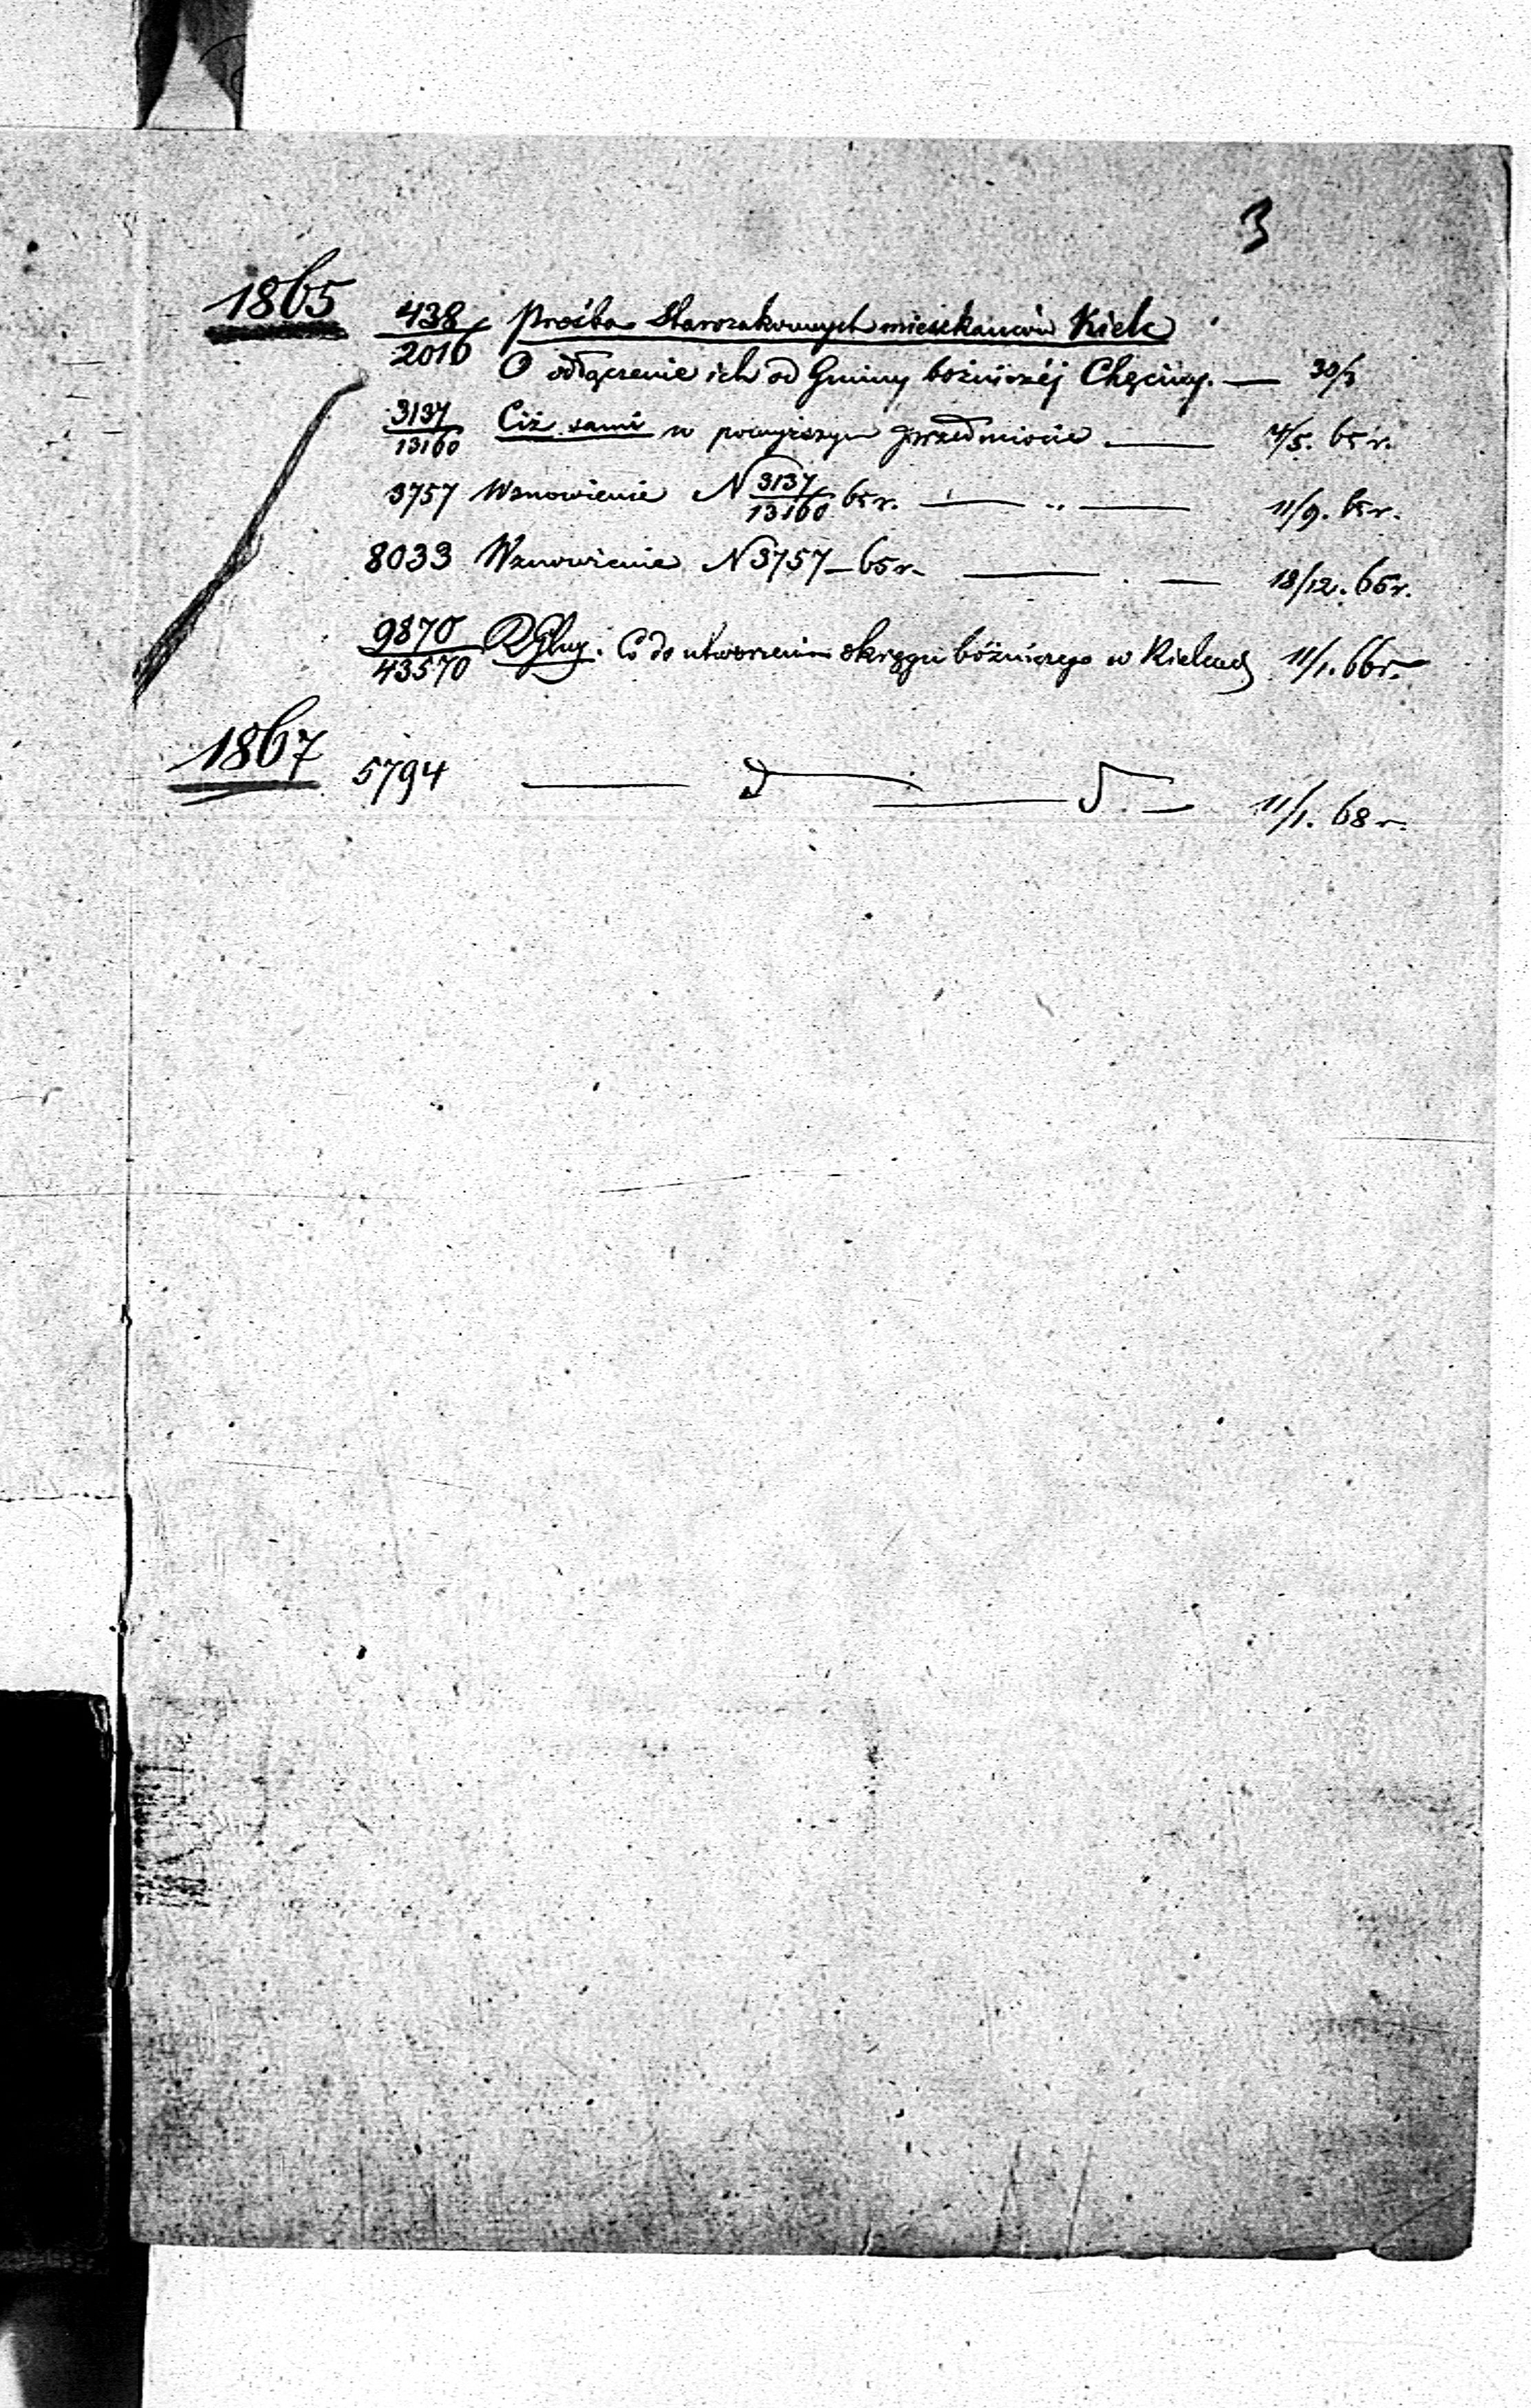 3
1865 438/2016 Prośba Starozakonnych mieszkanców Kielc
O odłączenie ich od Gminy bożniczéj Chęciny. — 30/3
3137/13160 Ciż sami w powyższym przedmiocie — 4/5. 65 r.
3757 Wznowienie N 3137/13160 65 r. — „ — 11/9. 65 r.
8033 Wznowienie N 3757 – 65 r. — . — 18/12. 65 r.
9870/43570 RGlny. Co do utworzenia okręgu bóżniczego w Kielcach 11/1. 66 r.
1867 5794 — d — 11/1. 68 r.